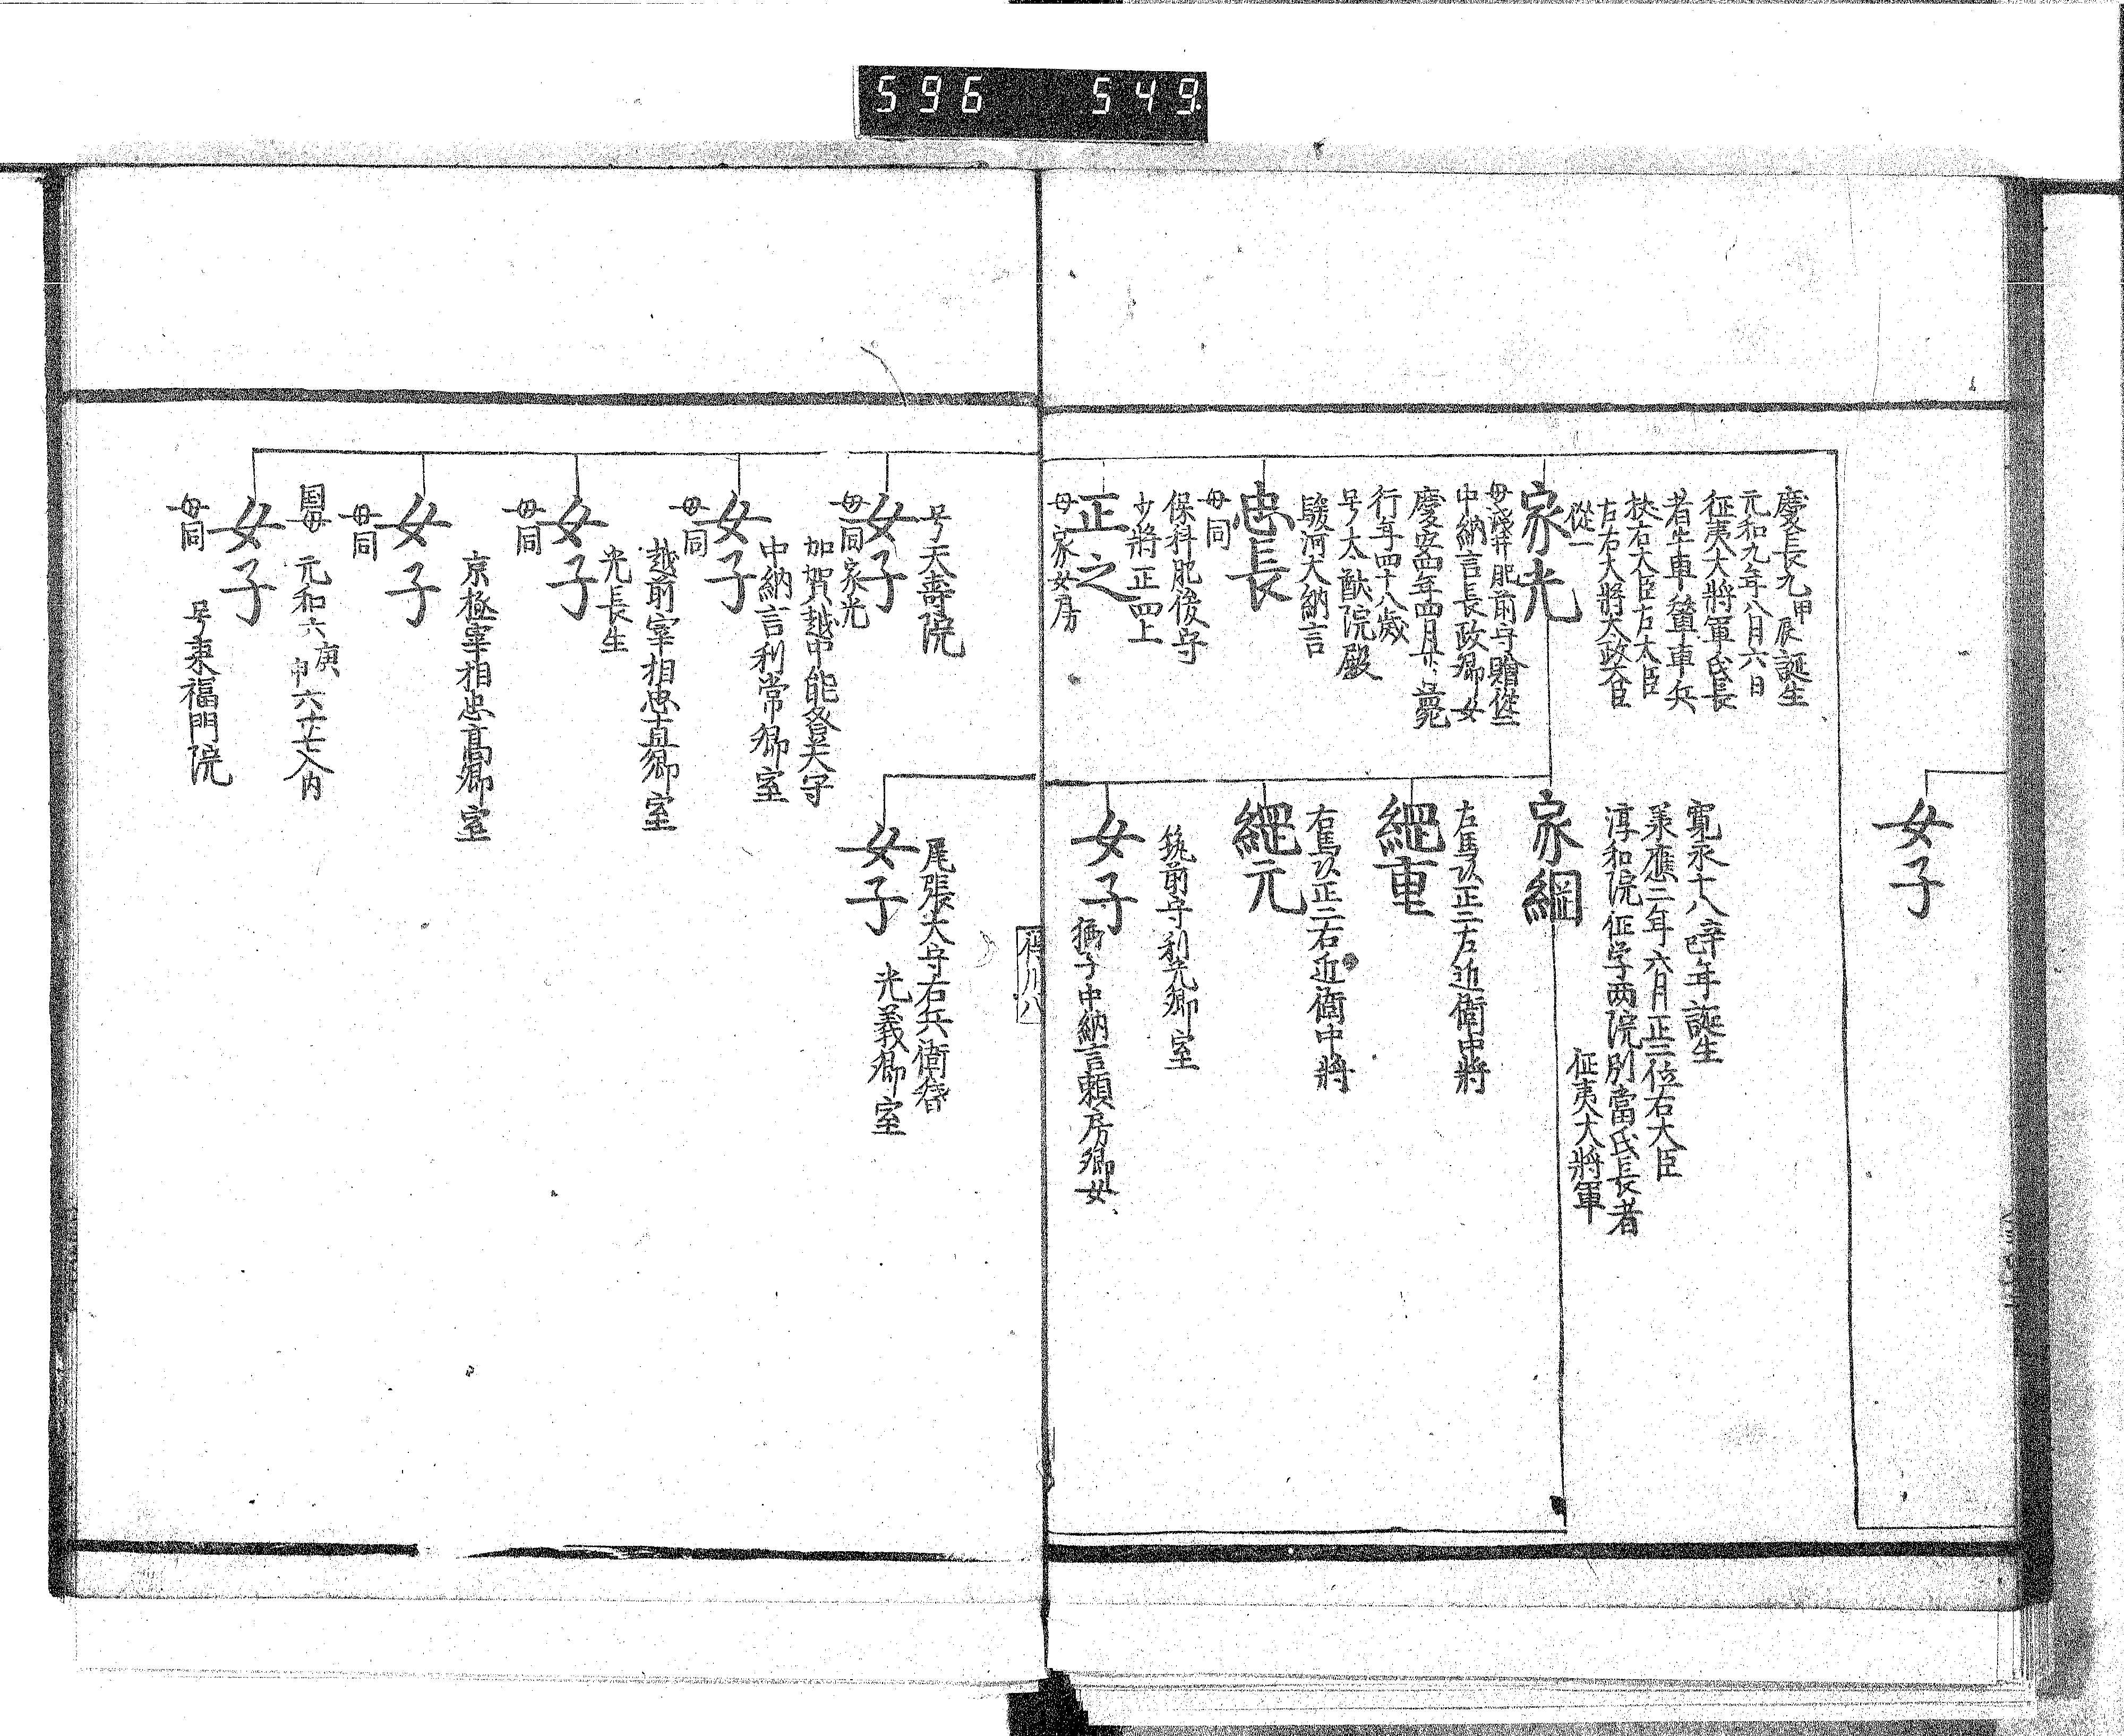 596 549
女子
慶長九甲辰誕生
元和九年八月六日
征夷大將軍氏長
者牛車輦車兵
扶右大臣左大臣
右右大將太政大臣
從一
家光
母淺井肥前守贈從二
中納言長政卿女
慶安四年四月廿、薨
行年四十八歳
号大猷院殿
駿河大納言
忠長
母同
保科肥後守
少將正四上
正之
母家女房
寛永十八辛巳年誕生
兼應二年六月正二位右大臣
淳和院征学両院別當氏長者
征夷大將軍
家綱
左馬頭正三左近衛中將
綱重
右馬頭正三右近衛中將
綱元
筑前守利光卿室
女子
猶子中納言頼房卿女
德川八
号天壽院
女子
母同家光
加賀越中能登大守
中納言利常卿室
女子
母同
越前宰相忠直卿室
光長生
女子
母同
京極宰相忠高卿室
女子
母同
国母 元和六庚申六十七入内
女子
母同
号東福門院
尾張大守右兵衛督
光義卿室
女子